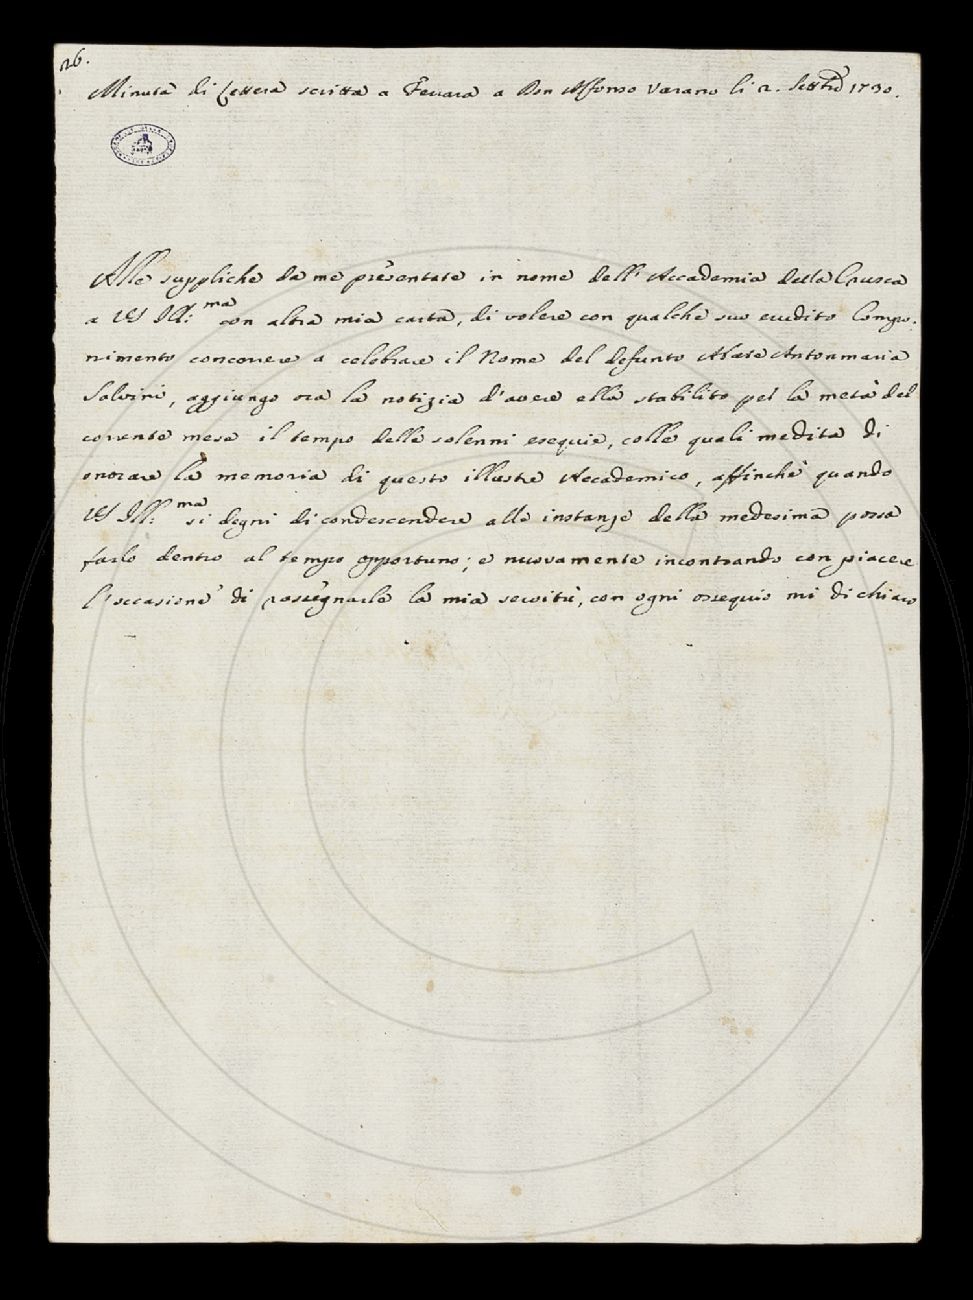 26.
Minuta di Lettera scritta a Ferrara a Don Alfonso Varano li 2. Settre 1730.
Alle suppliche da me presentate in nome dell' Accademia della Crusca
a VS Ill:ma con altra mia carta, di volere con qualche suo erudito Compo-
nimento concorrere a celebrare il Nome del defunto Abate Antonmaria
Salvini, aggiungo ora la notizia d'avere ella stabilito per la metà del
corrente mese il tempo delle solenni esequie, colle quali medita di
onorare la memoria di questo illustre Accademico, affinchè quando
VS Ill:ma si degni di condescendere alle instanze della medesima possa
farlo dentro al tempo opportuno; e nuovamente incontrando con piacere
l'occasione di rassegnarle la mia servitù, con ogni ossequio mi dichiaro